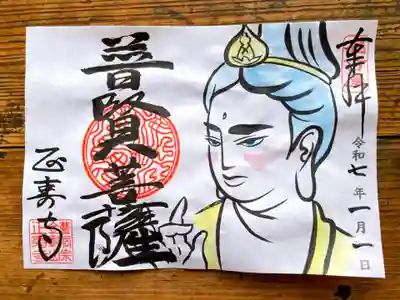 奉拝
令和七年一月一日
普賢菩薩
正寿寺